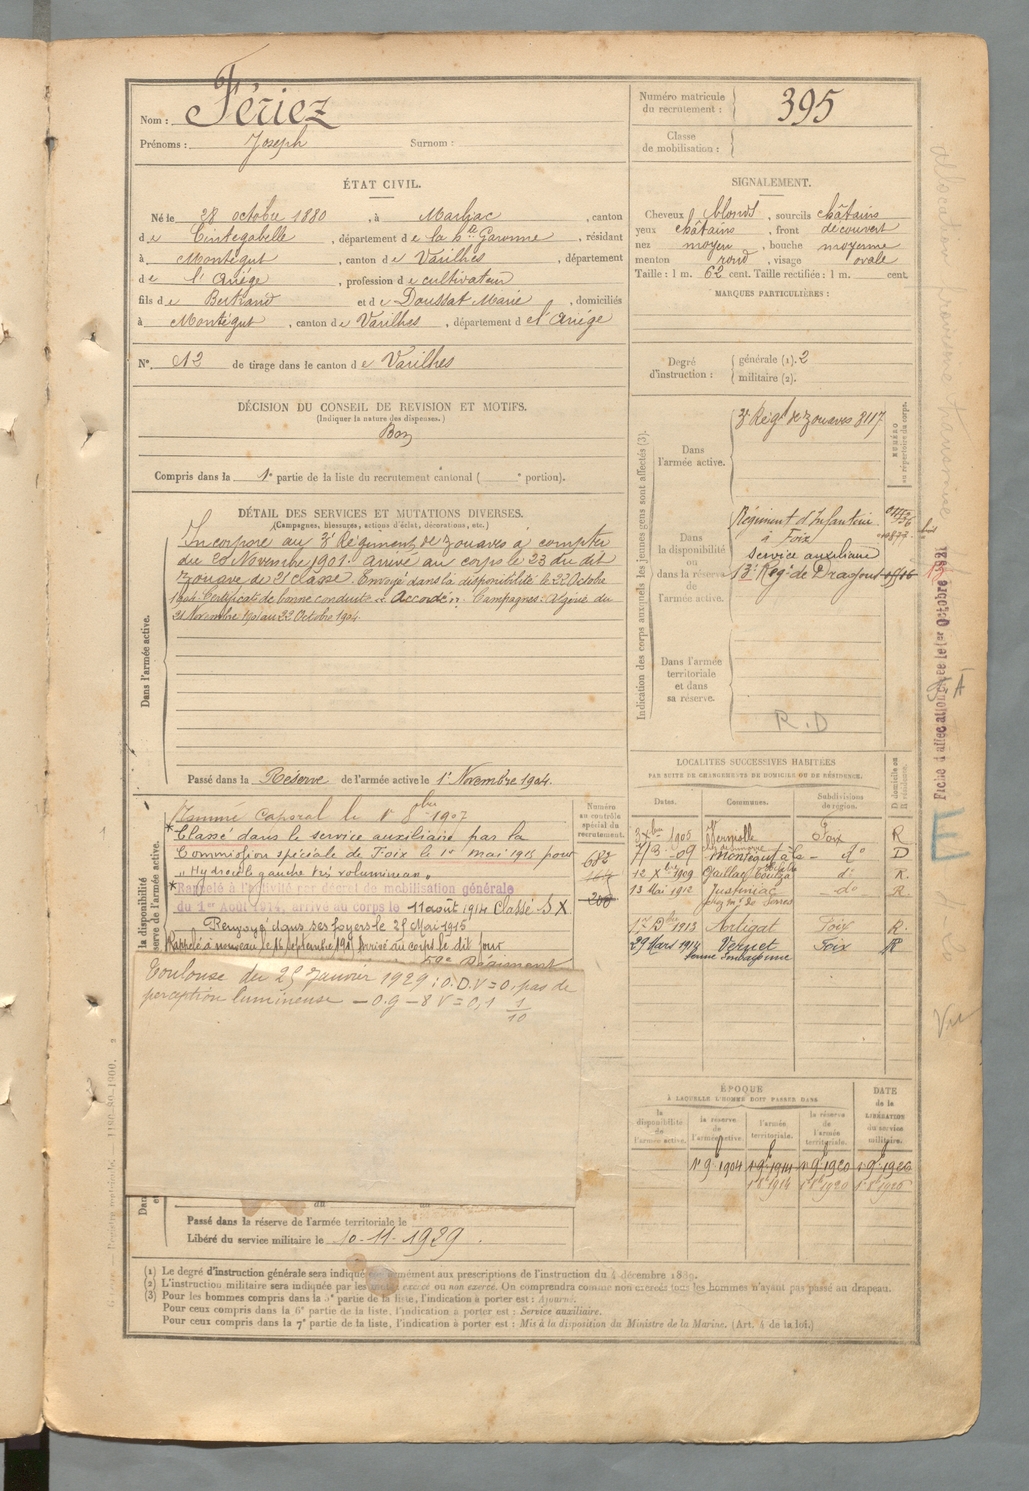 Nom : Fériez
Prénoms : Joseph Surnom :
Numéro matricule du recrutement : 395
Classe de mobilisation :
ÉTAT CIVIL.
Né le 28 octobre 1880, à Marliac, canton
de Cintegabelle, département de la hte Garonne, résidant
à Montégut, canton de Varilhes, département
de l'Ariége, profession de cultivateur
fils de Bertrand et de Doussat Marie, domiciliés
à Montégut, canton de Varilhes, département de l'Ariége
N° 12 de tirage dans le canton de Varilhes
SIGNALEMENT.
Cheveux blonds, sourcils châtains
yeux châtains, front découvert
nez moyen, bouche moyenne
menton rond, visage ovale
Taille : 1 m. 62 cent. Taille rectifiée : 1 m. cent.
MARQUES PARTICULIÈRES :
Degré d'instruction : générale (1). 2
militaire (2).
DÉCISION DU CONSEIL DE REVISION ET MOTIFS.
(Indiquer la nature des dispenses.)
Bon
Compris dans la 1e partie de la liste du recrutement cantonal ( e portion).
DÉTAIL DES SERVICES ET MUTATIONS DIVERSES.
(Campagnes, blessures, actions d'éclat, décorations, etc.)
Dans l'armée active.
Incorporé au 3e Régiment de zouaves à compter
du 20 Novembre 1901. Arrivé au corps le 23 du dit
Zouave de 2e classe. Envoyé dans la disponibilité le 22 Octobre
1904. Certificat de bonne conduite "Accordé". Campagnes: Algérie du
21 Novembre 1901 au 22 Octobre 1904
Passé dans la Réserve de l'armée active le 1er Novembre 1904.
Indication des corps auxquels les jeunes gens sont affectés (3).
NUMÉRO au répertoire du corps.
Dans l'armée active.
3e Régt de Zouaves 8117
Dans la disponibilité ou dans la réserve de l'armée active.
Régiment d'Infanterie
à Foix
Service auxiliaire
13e Régt de Dragons
Dans l'armée territoriale et dans sa réserve.
R.D
la disponibilité
serve de l'armée active.
Nommé Caporal le 1er 8bre 1907
Classé dans le service auxiliaire par la
Commission spéciale de Foix le 1er mai 1915 pour
"Hydrocèle gauche très volumineux"
Rappelé à l'activité par décret de mobilisation générale
du 1er Août 1914, arrivé au corps le 11 août 1914 Classé SX
Renvoyé dans ses foyers le 25 Mai 1915
Rappelé à nouveau le 16 septembre 1915 Arrivé au corps le dit jour
59e Régiment
Toulouse du 25 Janvier 1929 : O.D.V = 0, pas de
perception lumineuse – O.g – 8 V = 0,1 1/10
Numéro au contrôle spécial du recrutement.
682
LOCALITÉS SUCCESSIVES HABITÉES
PAR SUITE DE CHANGEMENTS DE DOMICILE OU DE RÉSIDENCE.
Dates. Communes. Subdivisions de région. D domicile ou R résidence.
Foix R
7/3 09 Montégut do D
12 Xbre 1909 Gaillac Toulza do R
13 Mai 1912 Justiniac do R
1er 1913 Artigat Foix R.
29 Mars 1914 Vernet Foix R
ÉPOQUE
À LAQUELLE L'HOMME DOIT PASSER DANS
la disponibilité de l'armée active.
la réserve de l'armée active
l'armée territoriale.
la réserve de l'armée territoriale.
DATE de la LIBÉRATION du service militaire.
1er 9bre 1904 1er 9bre 1914 1er 9bre 1920 1er 9bre 1926
1914 1920 1926
Fiche d'affectation créée le 1er Octobre 1921
allocation
Passé dans la réserve de l'armée territoriale le
Libéré du service militaire le 10-11-1929.
(1) Le degré d'instruction générale sera indiqué conformément aux prescriptions de l'instruction du 4 décembre 1889.
(2) L'instruction militaire sera indiquée par les mots exercé ou non exercé. On comprendra comme non exercés tous les hommes n'ayant pas passé au drapeau.
(3) Pour les hommes compris dans la 5e partie de la liste, l'indication à porter est : Ajourné.
Pour ceux compris dans la 6e partie de la liste, l'indication à porter est : Service auxiliaire.
Pour ceux compris dans la 7e partie de la liste, l'indication à porter est : Mis à la disposition du Ministre de la Marine. (Art. 4 de la loi.)